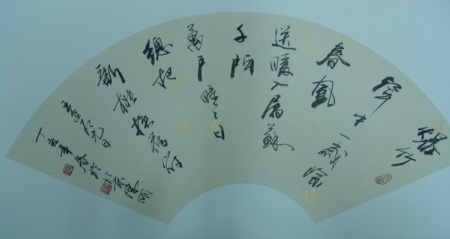 爆竹
聲中
一歲除
春風
送暖入屠蘇
千門
萬戶曈曈日
總把
新桃換舊符
元日
丁亥年春